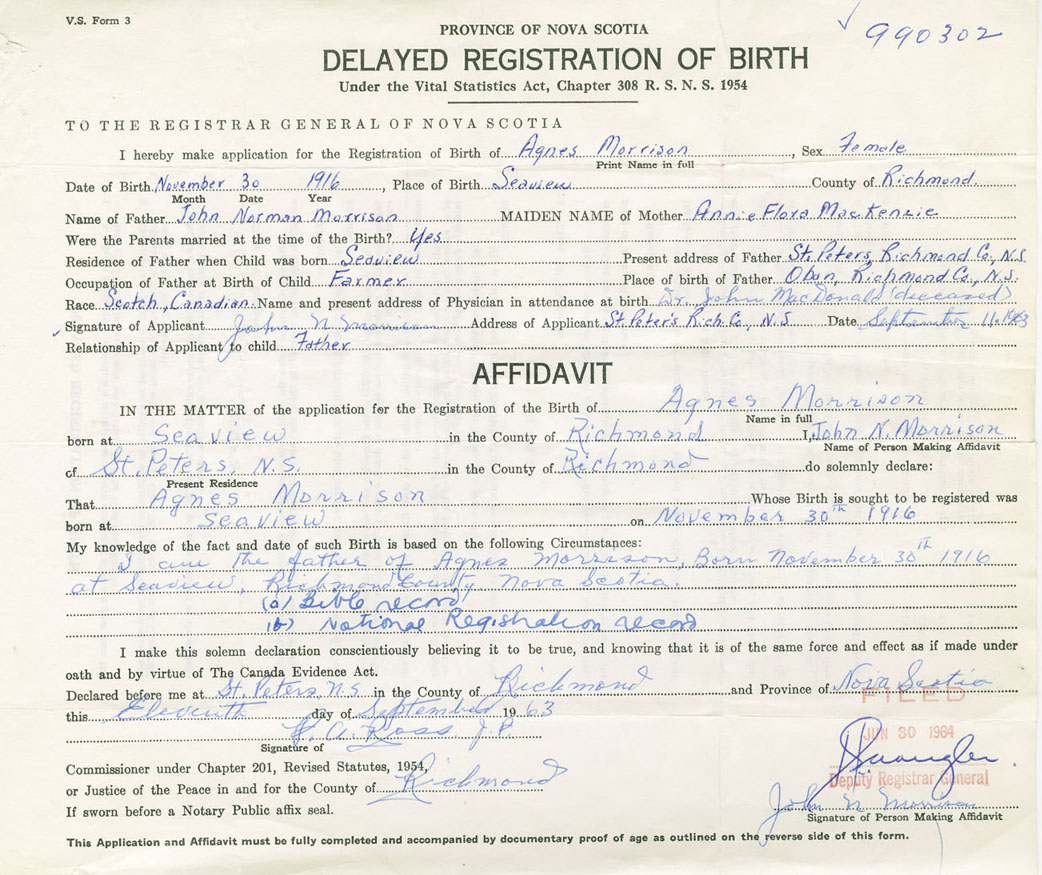 V.S. Form 3
990302
PROVINCE OF NOVA SCOTIA
DELAYED REGISTRATION OF BIRTH
Under the Vital Statistics Act, Chapter 308 R. S. N. S. 1954
TO THE REGISTRAR GENERAL OF NOVA SCOTIA
I hereby make application for the Registration of Birth of Agnes Morrison, Sex Female
Print Name in full
Date of Birth November 30 1916, Place of Birth Seaview County of Richmond.
Month Date Year
Name of Father John Norman Morrison MAIDEN NAME of Mother Annie Flora MacKenzie
Were the Parents married at the time of the Birth? Yes
Residence of Father when Child was born Seaview Present address of Father St. Peters, Richmond Co., N.S.
Occupation of Father at Birth of Child Farmer Place of birth of Father Oban, Richmond Co., N.S.
Race Scotch, Canadian Name and present address of Physician in attendance at birth Dr. John MacDonald (deceased)
Signature of Applicant John N Morrison Address of Applicant St. Peter's Rich. Co., N.S Date September 11, 1963
Relationship of Applicant to child Father
AFFIDAVIT
IN THE MATTER of the application for the Registration of the Birth of Agnes Morrison
Name in full
born at Seaview in the County of Richmond I, John N. Morrison
Name of Person Making Affidavit
of St. Peters, N.S. in the County of Richmond do solemnly declare:
Present Residence
That Agnes Morrison Whose Birth is sought to be registered was
born at Seaview on November 30th 1916
My knowledge of the fact and date of such Birth is based on the following Circumstances:
I am the father of Agnes Morrison, Born November 30th 1916
at Seaview, Richmond County Nova Scotia.
(a) Bible record
(b) National Registration record
I make this solemn declaration conscientiously believing it to be true, and knowing that it is of the same force and effect as if made under
oath and by virtue of The Canada Evidence Act.
Declared before me at St. Peters, N.S. in the County of Richmond and Province of Nova Scotia
FILED
this Eleventh day of September 1963
A. Ross J.P.
JUN 30 1964
Signature of
Commissioner under Chapter 201, Revised Statutes, 1954,
Deputy Registrar General
or Justice of the Peace in and for the County of Richmond
John N Morrison
If sworn before a Notary Public affix seal.
Signature of Person Making Affidavit
This Application and Affidavit must be fully completed and accompanied by documentary proof of age as outlined on the reverse side of this form.